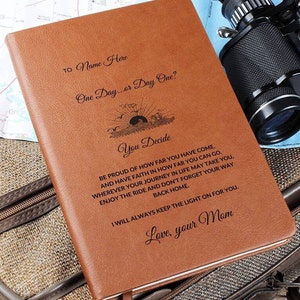 TO Name Here
One Day...or Day One?
You Decide
BE PROUD OF HOW FAR YOU HAVE COME,
AND HAVE FAITH IN HOW FAR YOU CAN GO.
WHEREVER YOUR JOURNEY IN LIFE MAY TAKE YOU,
ENJOY THE RIDE AND DON'T FORGET YOUR WAY
BACK HOME.
I WILL ALWAYS KEEP THE LIGHT ON FOR YOU
Love, your Mom